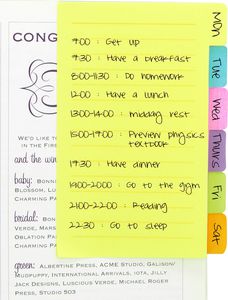 CONG
Mon
Tue
Wed
Thurs
Fri
Sat
9:00 : Get up
9:30 : Have a breakfast
8:00-11:30 : Do homework
12:00 : Have a lunch
13:00-14:00 : midday rest
15:00-17:00 : Preview physics
textbook
19:30 : Have dinner
: Go to the gym
21:00-22:00 : Reading
22:30 : Go to sleep
WE'D LIKE TO
IN THE FIRS
and the win
baby: BONNI
BLOSSOM, LU
CHARMING PA
bridal: BONN
VERDE, MARS
OBLATION PA
CHARMING PA
green: ALBERTINE PRESS, ACME STUDIO, GALISON/
MUDPUPPY, INTERNATIONAL ARRIVALS, IOTA, JILLY
JACK DESIGNS, LUSCIOUS VERDE, MICHAEL ROGER
PRESS, STUDIO 503